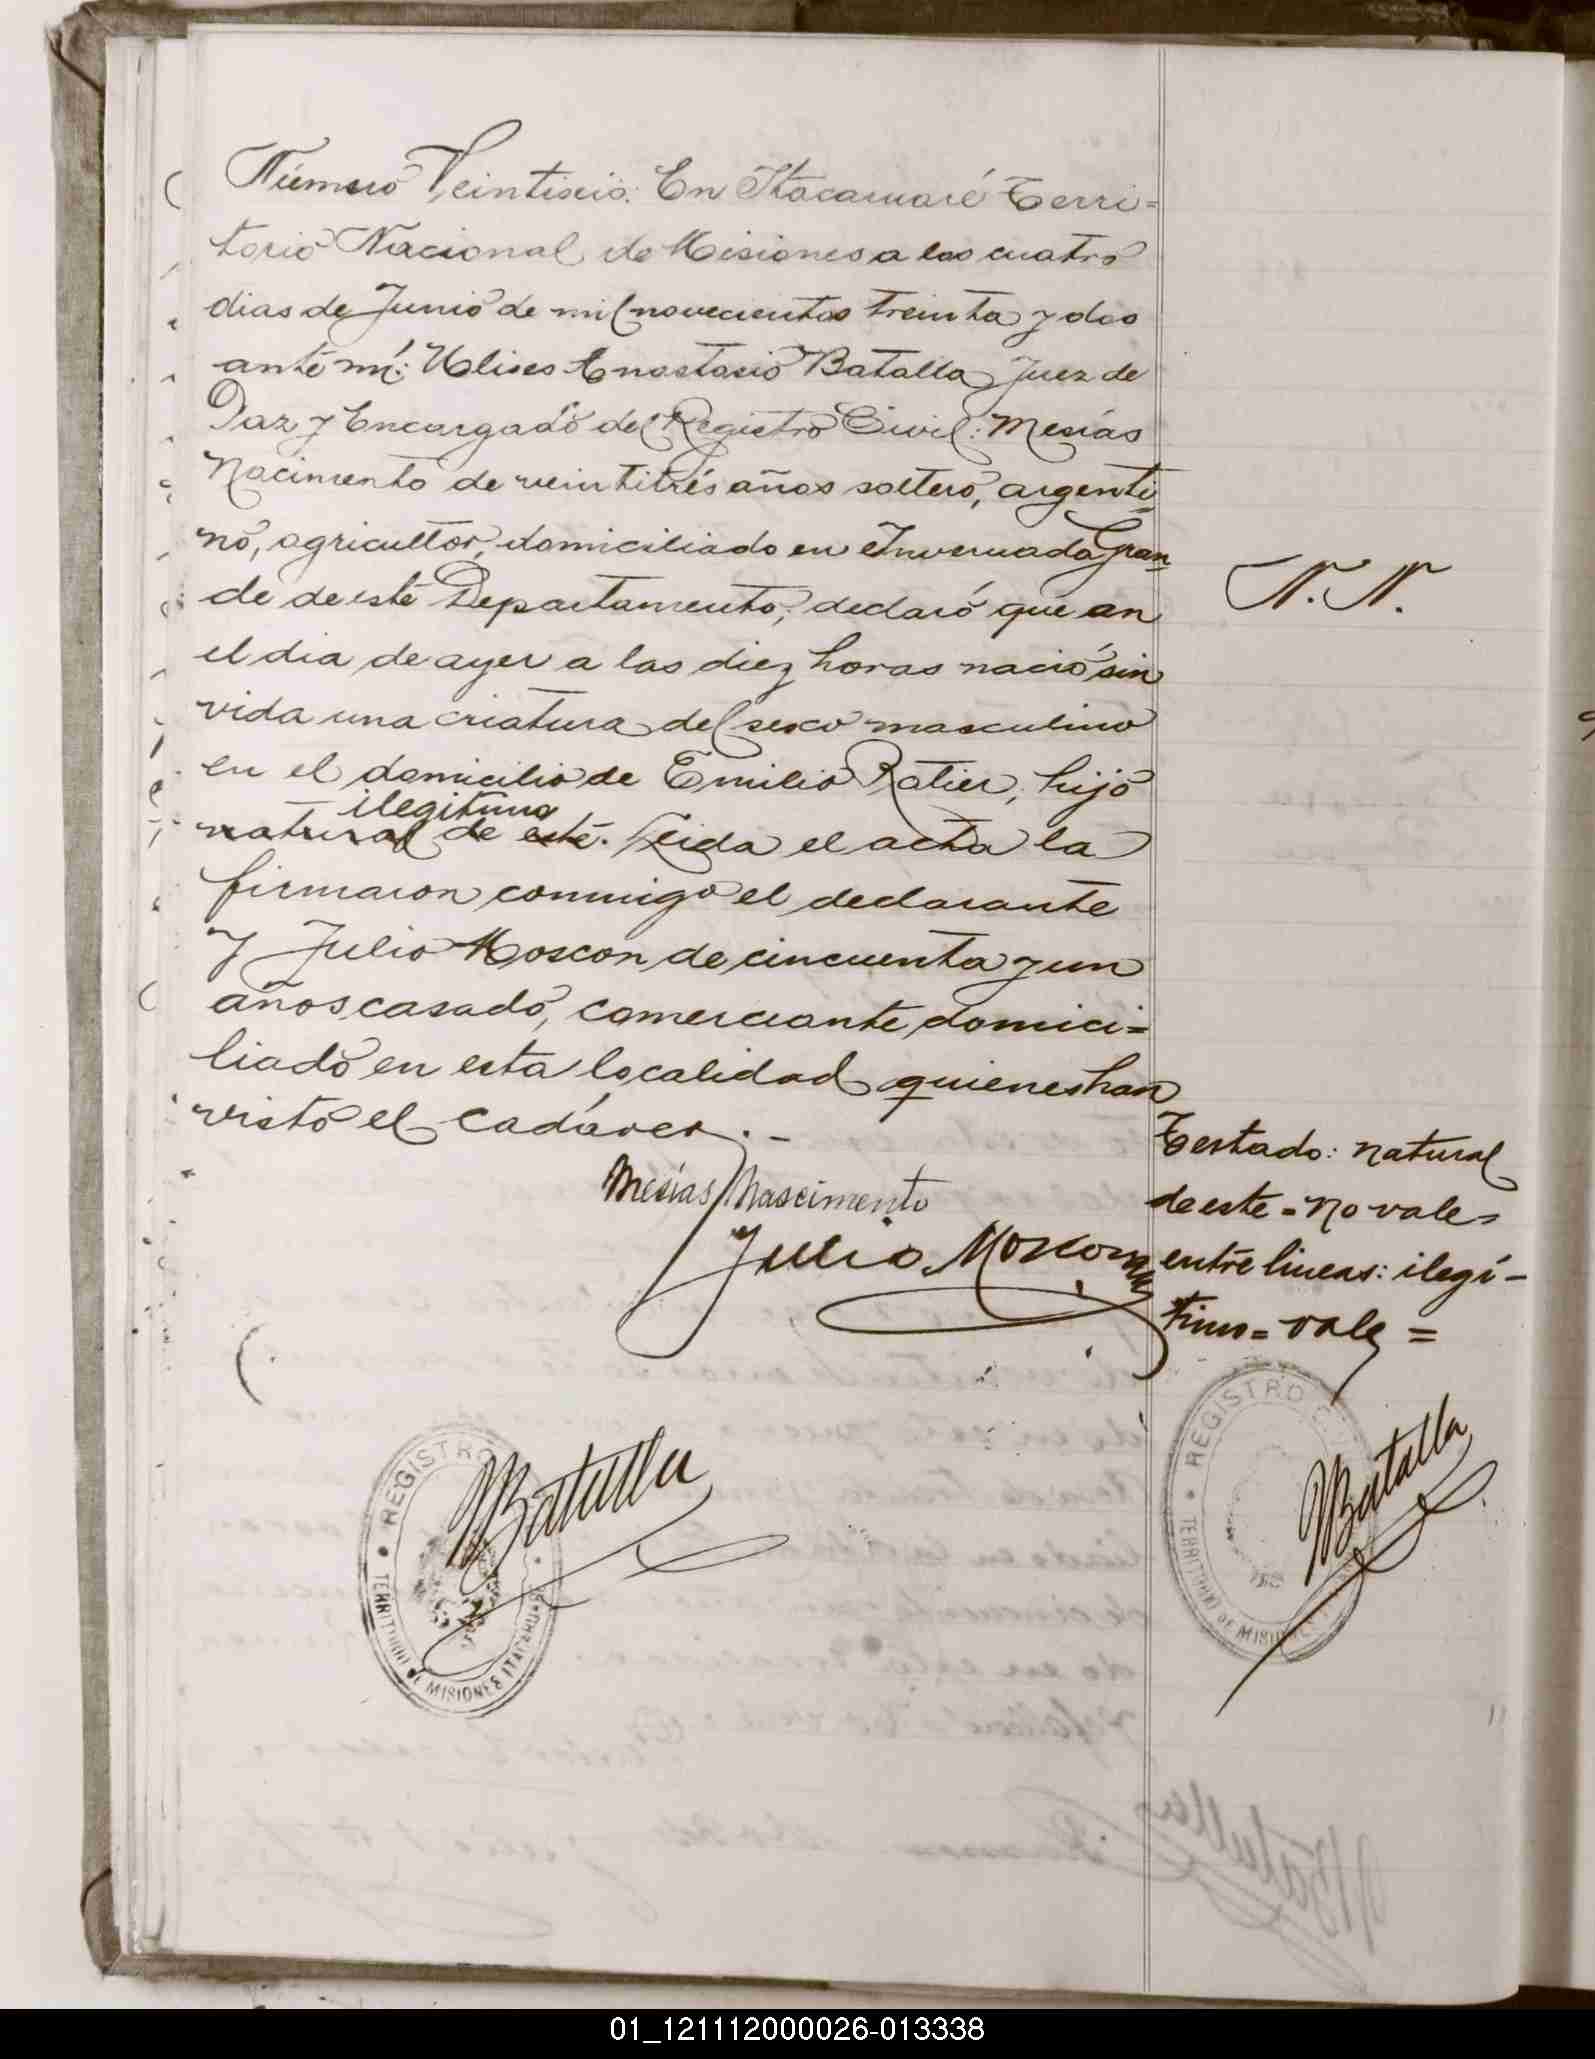 Número Veintiseis: En Itacaruaré Terri=
torio Nacional de Misiones a los cuatro
dias de Junio de mil novecientos treinta y dos
ante mí: Ulises Anastasio Batalla Juez de
Paz y Encargado del Registro Civil: Mesías
Nacimento de veintitrés años soltero, argenti=
no, agricultor, domiciliado en Invernada Gran=
de de este Departamento; declaró que en
el dia de ayer a las diez horas nació sin
vida una criatura del sexo masculino
en el domicilio de Emilio Ratier, hijo
ilegitimo
natural de este. Leida el acta la
firmaron conmigo el declarante
y Julio Moscon de cincuenta y un
años casado, comerciante domici=
liado en esta localidad quienes han
visto el cadáver.-
Mesías Nascimento
Julio Moscon
N. N.
Testado: natural
de este = No vale =
entre lineas: ilegí-
timo = vale =
REGISTRO
TERRITORIO DE MISIONES ITACARU
Batalla
REGISTRO C
TERRITORIO DE MISIONES
Batalla
01_121112000026-013338